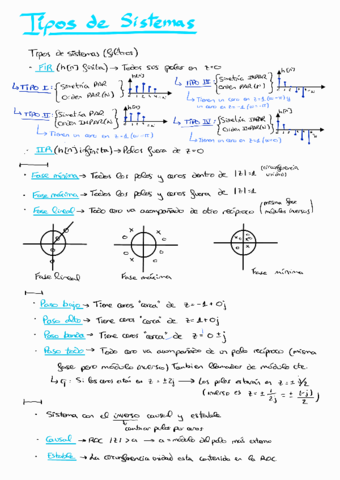 Tipos de Sistemas
Tipos de sistemas (filtros)
· FIR (h[n] finita) → Todos sus polos en z=0
↳ TIPO I: { Simetría PAR
Orden PAR (N)
h[n]
↳ TIPO III: { Simetría IMPAR
Orden PAR (N)
h[n]
↳ TIPO II: { Simetría PAR
Orden IMPAR (N)
h[n]
↳ Tienen un cero en z=-1 (w=π)
↳ TIPO IV: { Simetría IMPAR
Orden IMPAR (N)
h[n]
↳ Tienen un cero en z=1 (w=0)
· IIR (h[n] infinita) → Polos fuera de z=0
· Fase mínima → Todos los polos y ceros dentro de |z|=1 (circunferencia unidad)
· Fase máxima → Todos los polos y ceros fuera de |z|=1
· Fase lineal → Todo cero va acompañado de otro recíproco (misma fase módulo inverso)
Fase lineal
Fase máxima
Fase mínima
· Paso bajo → Tiene ceros "cerca" de z=-1+0j
· Paso Alto → Tiene ceros "cerca" de z=1+0j
· Paso banda → Tiene ceros "cerca" de z=0±j
· Paso todo → Todo cero va acompañado de un polo recíproco (misma
fase pero módulo inverso) También llamados de módulo cte
↳ ej: Si los ceros están en z=±2j → Los polos estarán en z=±j/2
· Sistema con el inverso causal y estable
↳ cambiar polos por ceros
· Causal → ROC |z|>a → a=módulo del polo más externo
· Estable → La circunferencia unidad está contenida en la ROC